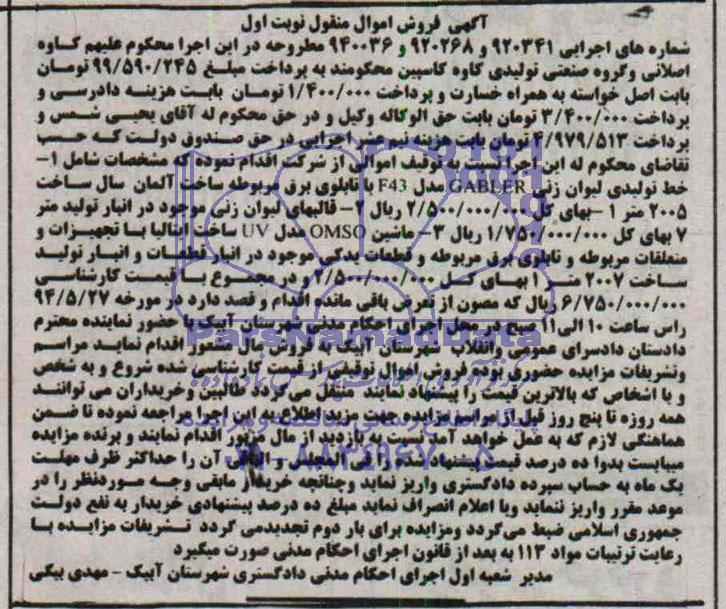 آگهی فروش اموال منقول نوبت اول
شماره های اجرایی ۹۲۰۳۴۱ و ۹۲۰۲۶۸ و ۹۴۰۰۳۶ مطروحه در این اجرا محکوم علیهم کاوه
اصلانی وگروه صنعتی تولیدی کاوه کاسپین محکومند به پرداخت مبلغ ۹۹/۵۹۰/۲۴۵ تومان
بابت اصل خواسته به همراه خسارت و پرداخت ۱/۴۰۰/۰۰۰ تومان بابت هزینه دادرسی و
پرداخت ۳/۴۰۰/۰۰۰ تومان بابت حق الوکاله وکیل و در حق محکوم له آقای یحیی شمس و
پرداخت ۴/۹۷۹/۵۱۳ تومان بابت هزینه نیم عشر اجرایی در حق صندوق دولت که حسب
تقاضای محکوم له این اجرا نسبت به توقیف اموالی از شرکت اقدام نموده که مشخصات شامل ۱-
خط تولیدی لیوان زنی GABLER مدل F43 با تابلوی برق مربوطه ساخت آلمان سال ساخت
۲۰۰۵ متر ۱ -بهای کل ۲/۵۰۰/۰۰۰/۰۰۰ ریال ۲- قالبهای لیوان زنی موجود در انبار تولید متر
۷ بهای کل ۱/۷۵۰/۰۰۰/۰۰۰ ریال ۳- ماشین OMSO مدل UV ساخت ایتالیا با تجهیزات و
متعلقات مربوطه و تابلوی برق مربوطه و قطعات یدکی موجود در انبار قطعات و انبار تولید
ساخت ۲۰۰۷ متر ۱ بهای کل ۲/۵۰۰/۰۰۰/۰۰۰ و در مجموع با قیمت کارشناسی
۶/۷۵۰/۰۰۰/۰۰۰ ریال که مصون از تعرض باقی مانده اقدام و قصد دارد در مورخه ۹۴/۵/۲۷
راس ساعت ۱۰ الی ۱۱ صبح در محل اجرای احکام مدنی شهرستان آبیک با حضور نماینده محترم
دادستان دادسرای عمومی وانقلاب شهرستان آبیک به فروش مال مزبور اقدام نماید مراسم
وتشریفات مزایده حضوری بوده فروش اموال توقیفی از قیمت کارشناسی شده شروع و به شخص
و یا اشخاص که بالاترین قیمت را پیشنهاد نمایند منتقل می گردد طالبین وخریداران می توانند
همه روزه تا پنج روز قبل از مراسم مزایده جهت مزید اطلاع به این اجرا مراجعه نموده تا ضمن
هماهنگی لازم که به عمل خواهد آمد نسبت به بازدید از مال مزبور اقدام نمایند و برنده مزایده
میبایست بدوا ده درصد قیمت پیشنهاد شده را فی المجلس و الباقی آن را حداکثر ظرف مهلت
یک ماه به حساب سپرده دادگستری واریز نماید وچنانچه خریدار مابقی وجه موردنظر را در
موعد مقرر واریز ننماید ویا اعلام انصراف نماید مبلغ ده درصد پیشنهادی خریدار به نفع دولت
جمهوری اسلامی ضبط می گردد ومزایده برای بار دوم تجدیدمی گردد تشریفات مزایده با
رعایت ترتیبات مواد ۱۱۳ به بعد از قانون اجرای احکام مدنی صورت میگیرد
مدیر شعبه اول اجرای احکام مدنی دادگستری شهرستان آبیک - مهدی بیکی
ParsNamadData
۰۲۱-۸۸۳۴۹۶۷۰-۵